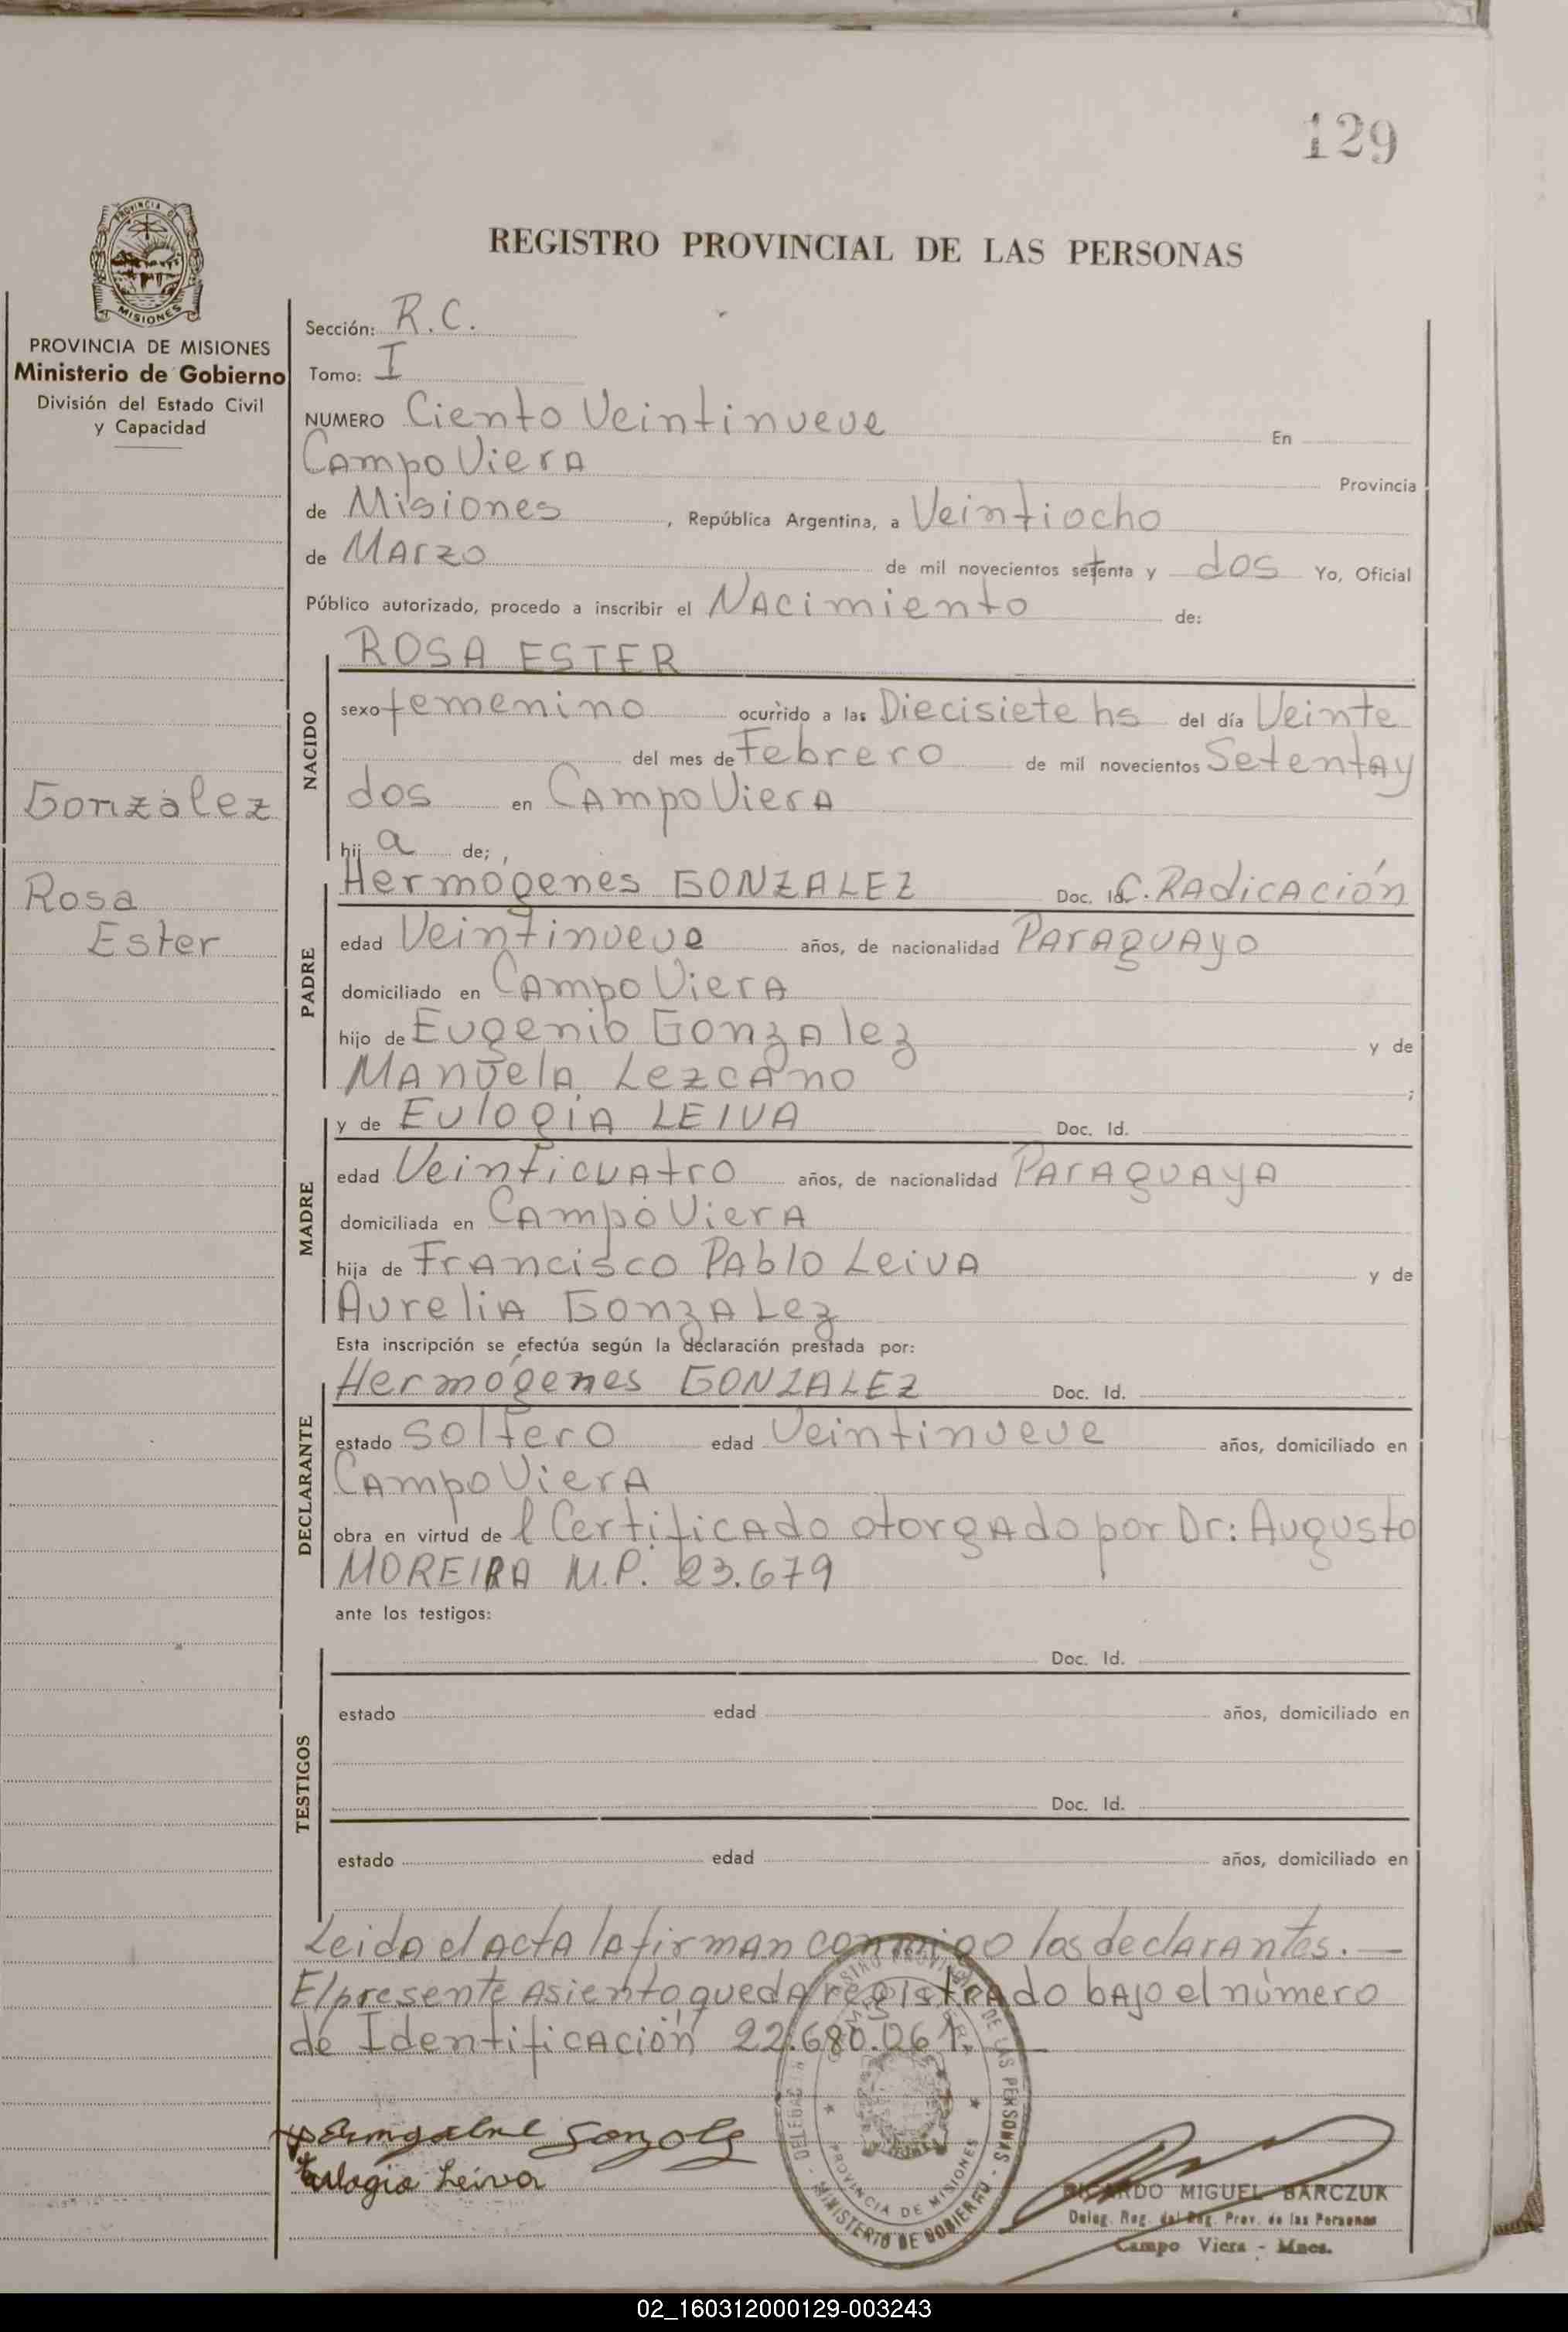 129
REGISTRO PROVINCIAL DE LAS PERSONAS
PROVINCIA DE MISIONES
Ministerio de Gobierno
División del Estado Civil
y Capacidad
Gonzàlez
Rosa
Ester
Sección: R.C.
Tomo: I
NUMERO Ciento Veintinueve En
Campo Viera Provincia
de Misiones, República Argentina, a Veintiocho
de Marzo de mil novecientos setenta y dos Yo, Oficial
Público autorizado, procedo a inscribir el Nacimiento de:
NACIDO
ROSA ESTER
sexo femenino ocurrido a las Diecisiete hs del día Veinte
del mes de Febrero de mil novecientos Setenta y
dos en Campo Viera
hija de;
PADRE
Hermógenes GONZALEZ Doc. Id. C. Radicación
edad Veintinueve años, de nacionalidad Paraguayo
domiciliado en Campo Viera
hijo de Eugenio Gonzalez y de
Manuela Lezcano ;
MADRE
y de Eulogia LEIVA Doc. Id.
edad Veinticuatro años, de nacionalidad Paraguaya
domiciliada en Campo Viera
hija de Francisco Pablo Leiva y de
Aurelia Gonzalez
Esta inscripción se efectúa según la declaración prestada por:
DECLARANTE
Hermógenes GONZALEZ Doc. Id.
estado soltero edad Veintinueve años, domiciliado en
Campo Viera
obra en virtud de l Certificado otorgado por Dr: Augusto
MOREIRA M.P. 23.679
ante los testigos:
TESTIGOS
Doc. Id.
estado edad años, domiciliado en
Doc. Id.
estado edad años, domiciliado en
Leida el acta la firman conmigo los declarantes.—
El presente Asiento queda registrado bajo el número
de Identificación 22.680.061.—
Eulogia Leiva
REGISTRO PROVINCIAL DE LAS PERSONAS
PROVINCIA DE MISIONES
MINISTERIO DE GOBIERNO
RICARDO MIGUEL BARCZUK
Deleg. Reg. del Reg. Prov. de las Personas
Campo Viera - Mnes.
02_160312000129-003243